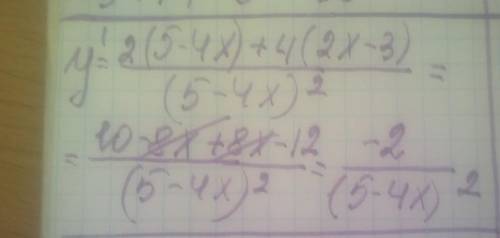 y' = \frac{2(5-4x)+4(2x-3)}{(5-4x)^2} =
= \frac{10-8x+8x-12}{(5-4x)^2} = \frac{-2}{(5-4x)^2}